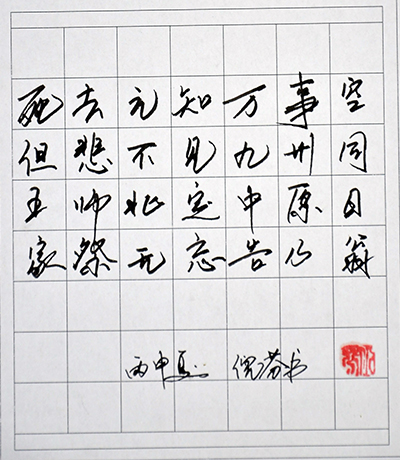 死去元知万事空
但悲不见九州同
王师北定中原日
家祭无忘告乃翁
丙申夏 倪 书